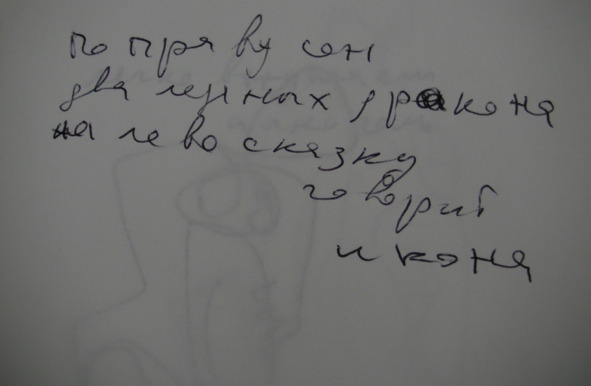 по пря ву сон
два ленных дракона
на лево сказку
говорит
икона